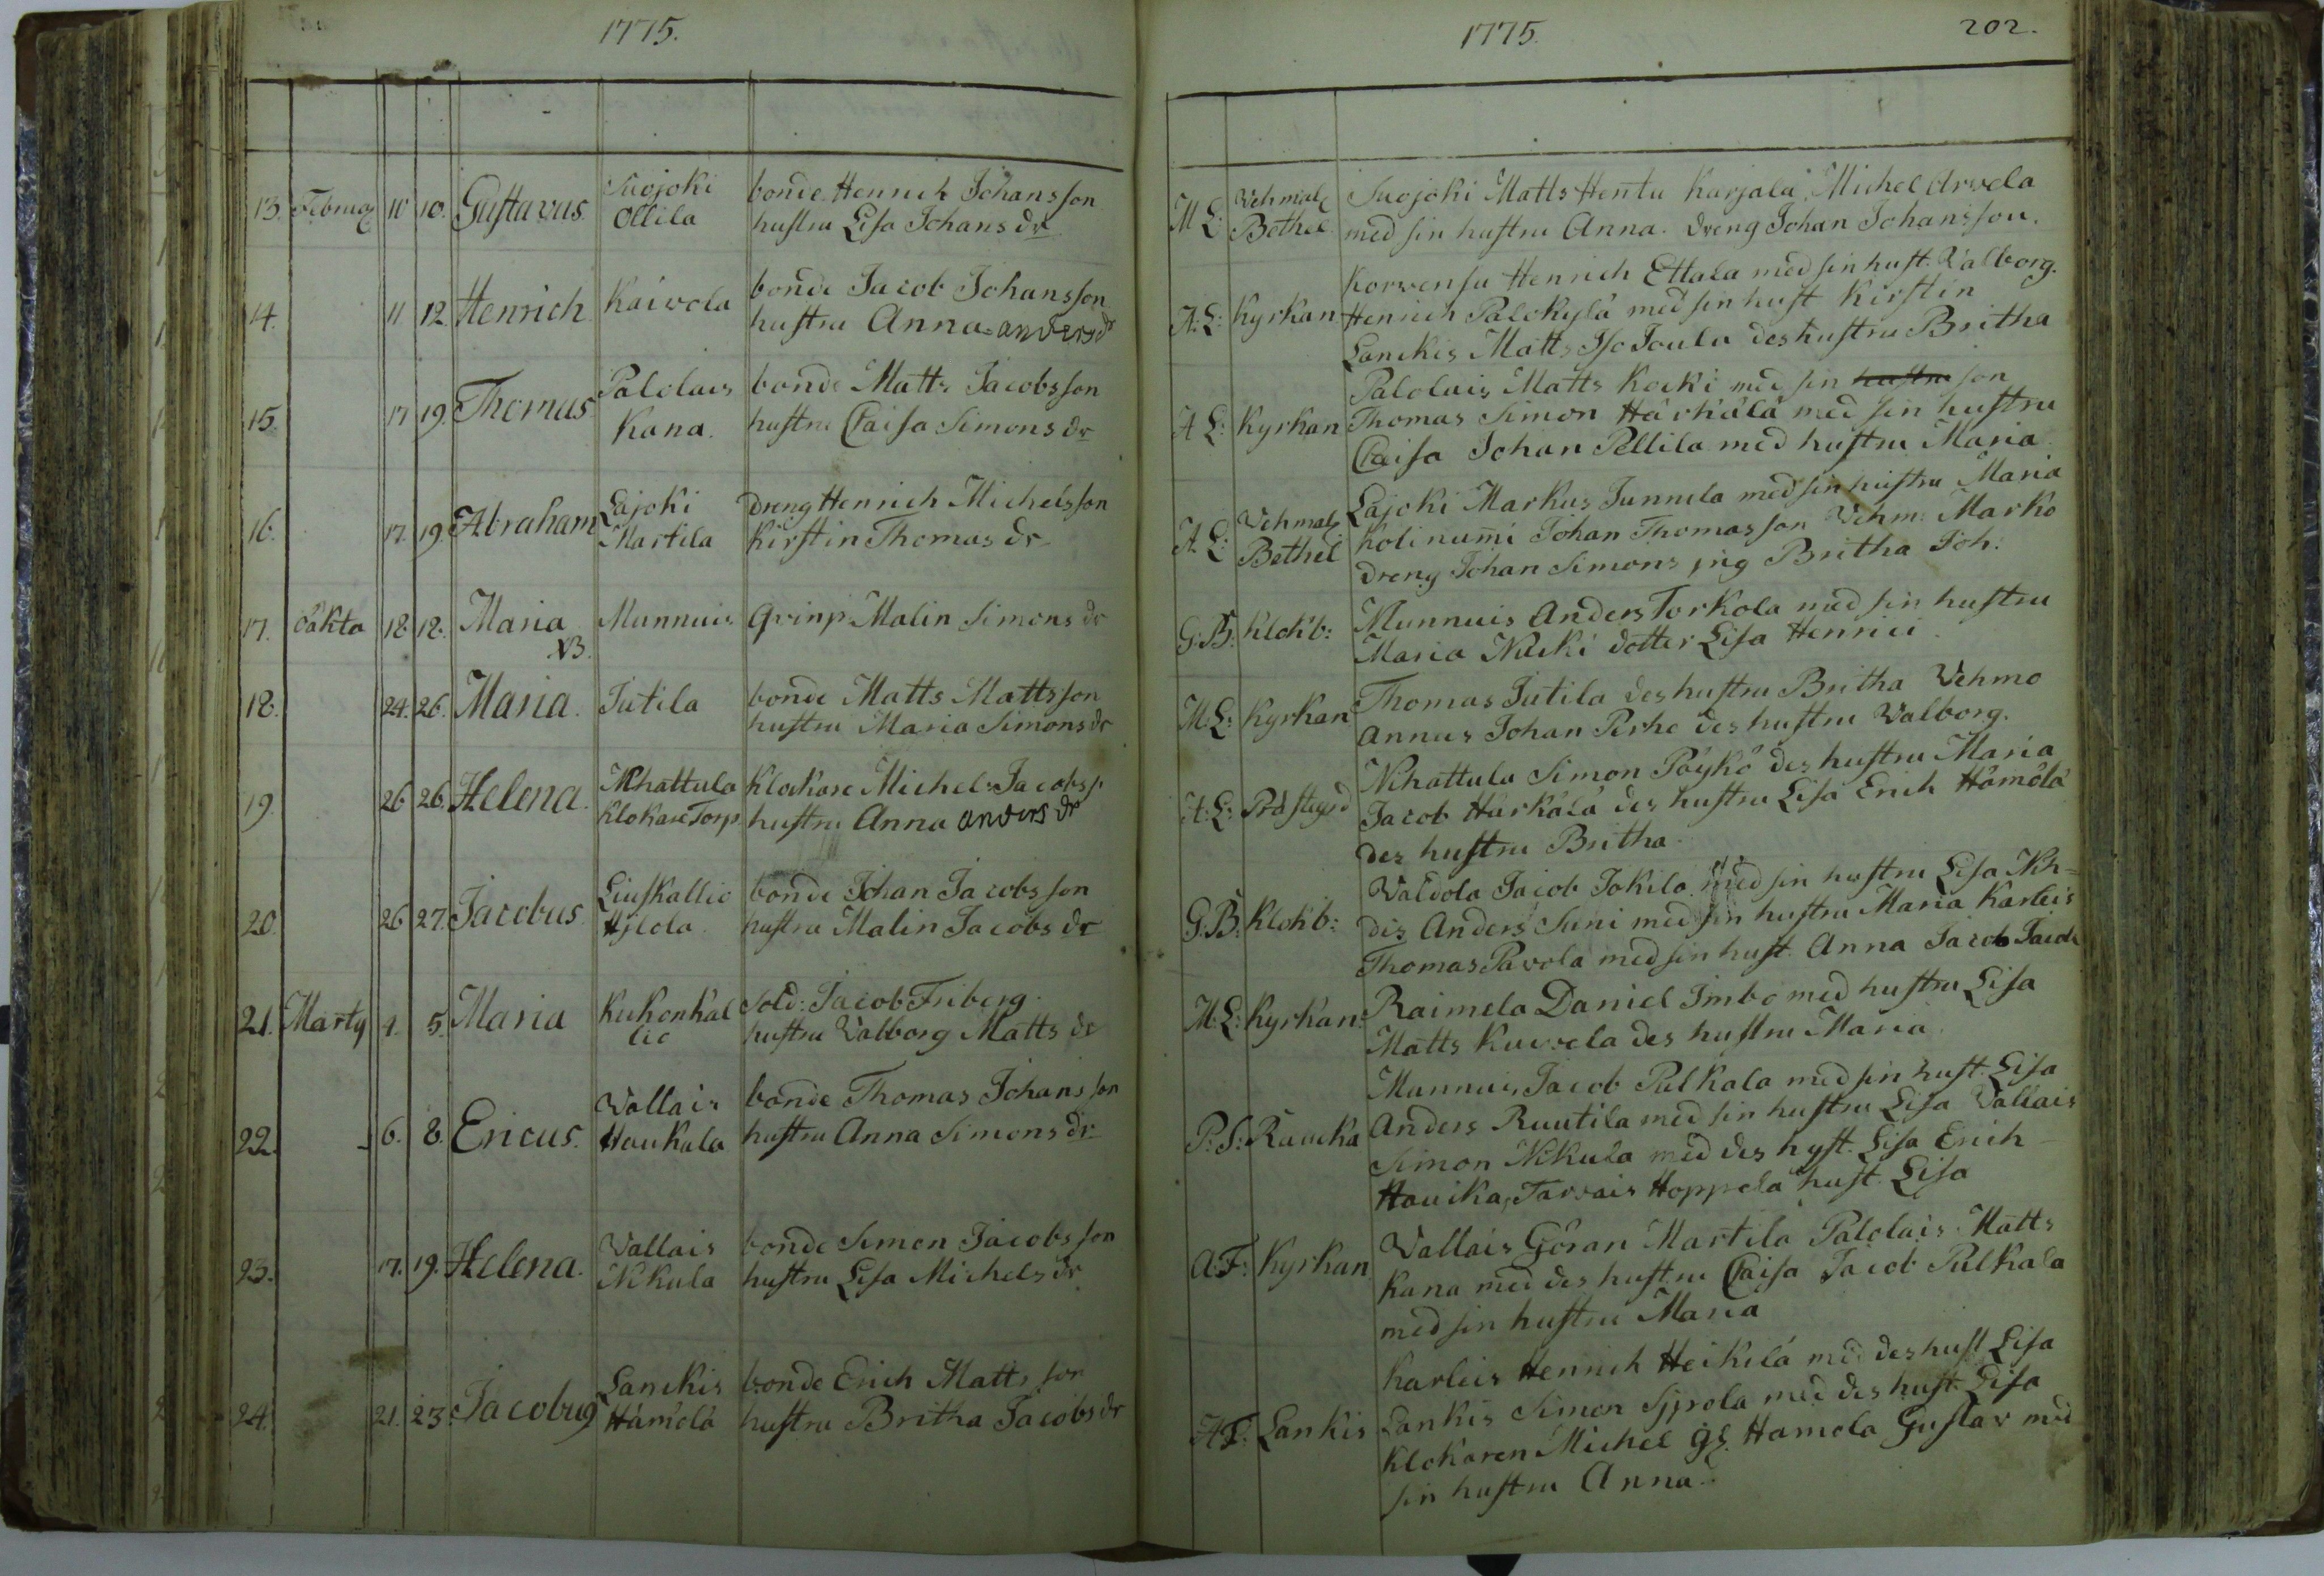 1775.
1775.
202.
13. Februar 11 10. Gustavus. Suojoki bonde Henrich Johansson
Ollila hustru Lisa Johans dr
M L: Vehmal Suojoki Matts Hentu Karjala Michel Arvela
Bethel med sin hustru Anna. dreng Johan Johansson.
14. 11 12. Henrich Kaivola bonde Jacob Johansson
hustru Anna anders dr
Korvensu Henrich Ettala med sin hust. Valborg.
A: L: Kyrkan Henrich Palokylä med sin hust Kirstin
Lanckis Matts Iso Toula des hustru Britha
15. 17 19. Thomas Palolais bonde Matts Jacobsson
Kana. hustru Caisa Simons dr
Palolais Matts Kocki med sin hustru son
A L: Kyrkan Thomas Simon Härkälä med sin hustru
Caisa Johan Pellila med hustru Maria
16. 17. 19. Abraham Lajoki dreng Henrich Michelsson
Martila Kirstin Thomas dr
Lajoki Markus Junnila med sin hustru Maria
A L: Vehmal Kolinumi Johan Thomasson Vehm: Marko
Bethel dreng Johan Simons pig Britha Joh:
17. oäkta 18. 18. Maria Munnuis Qvinp: Malin Simons dr
NB.
G: B: Klok b: Munnuis Anders Torkola med sin hustru
Maria Nicki dotter Lisa Henrici
18. 24. 26. Maria. Jutila bonde Matts Mattsson
hustru Maria Simons dr
M: L: Kyrkan Thomas Jutila des hustru Britha Vehmo
Annus Johan Perho des hustru Valborg.
19. 26 26. Helena. Nihattula Klockare Michel Jacobs s.
Klokare Torp. hustru Anna anders dr
Nihattula Simon Päykö des hustru Maria
A: L: Prästgrd Jacob Härkälä des hustru Lisa Erich Hämölä
des hustru Britha.
20. 26 27. Jacobus. Liuskallio bonde Johan Jacobsson
Ylola hustru Malin Jacobs dr
Valdola Jacob Jokila med sin hustru Lisa Nih=
G: B: Klok b: dis Anders Suni med sin hustru Maria Karleis
Thomas Pavola med sin hust. Anna Jacob
21. Martij 4. 5. Maria Kukonkal Sold: Jacob Friberg.
lio hustru Valborg Matts dr
M: L: Kyrkan: Raimela Daniel Jmbo med hustru Lisa
Matts Kuvvela des hustru Maria.
22. 6. 8. Ericus. Vallais bonde Thomas Johansson
Haukala hustru Anna Simons dr
Munnuis Jacob Pulkala med sin hust. Lisa
P: S: Raucka Anders Ruutila med sin hustru Lisa Vallais
Simon Nikula med des hust. Lisa Erich
Hauika, Tarvais Hoppela hust. Lisa
23. 17. 19. Helena. Vallais bonde Simon Jacobsson
Nikula hustru Lisa Michels dr
A: F: Kyrkan Vallais Göran Martila Palolais Matts
Kana med des hustru Caisa Jacob Pulkala
med sin hustru Maria
24. 21. 23. Jacobus Lanckis bonde Erich Mattsson
Hämölä hustru Britha Jacobs dr
Karleis Henrich Heikilä med des hust Lisa
A F: Lankis Lankis Simon Sjprola med des hust. Lisa
Klokaren Michel gl. Hamola Gustav med
sin hustru Anna.